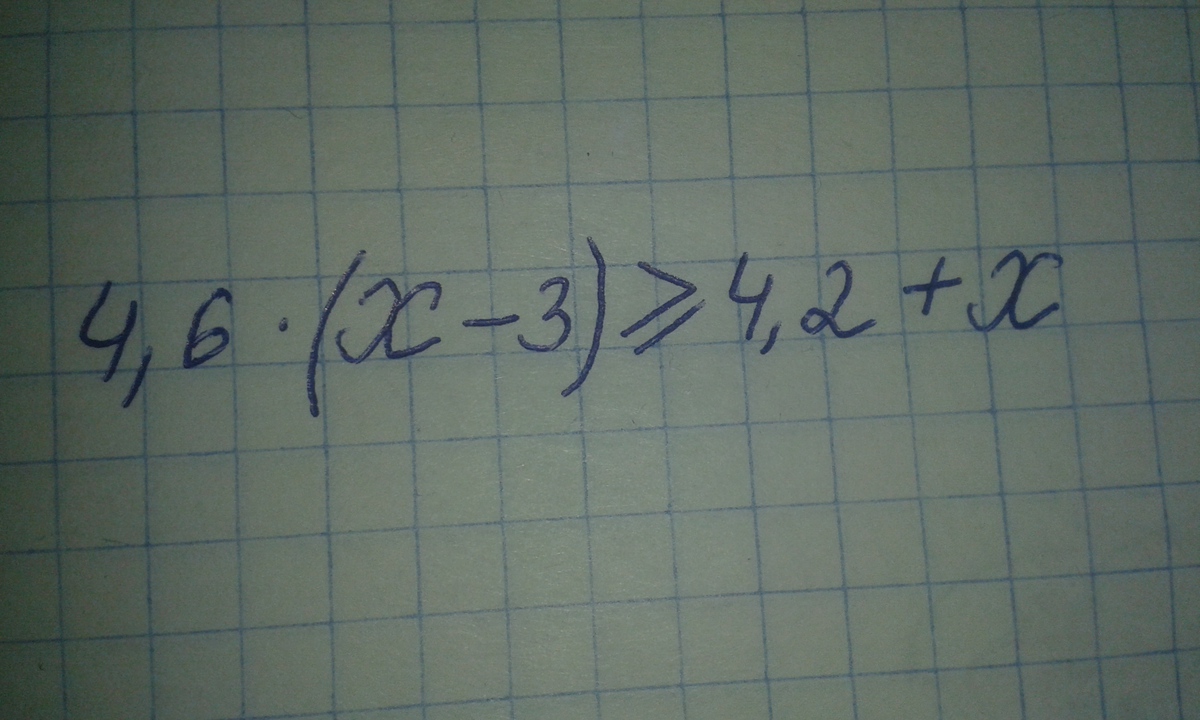 4,6 · (x - 3) ⩾ 4,2 + x